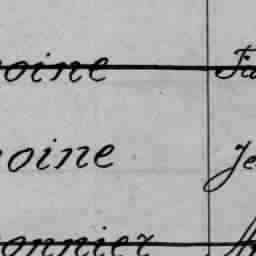 oine Fa
oine Je
onnier